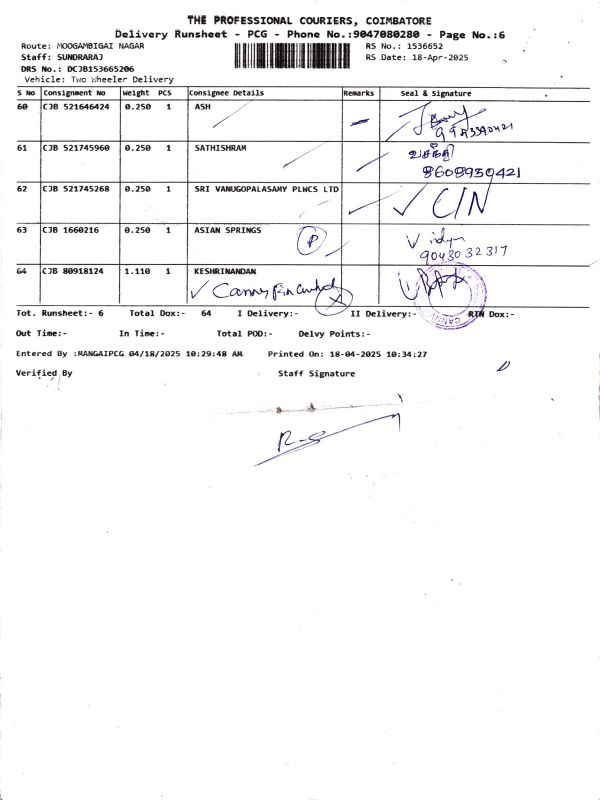 THE PROFESSIONAL COURIERS, COIMBATORE
Delivery Runsheet - PCG - Phone No.:9047080280 - Page No.:6
Route: MOOGAMBIGAI NAGAR RS No.: 1536652
Staff: SUNDRARAJ RS Date: 18-Apr-2025
DRS No.: DCJB153665206
Vehicle: Two Wheeler Delivery
S No Consignment No Weight PCS Consignee Details Remarks Seal & Signature
60 CJB 521646424 0.250 1 ASH
61 CJB 521745960 0.250 1 SATHISHRAM வசந்தி
8608950421
62 CJB 521745268 0.250 1 SRI VANUGOPALASAMY PLWCS LTD C/N
63 CJB 1660216 0.250 1 ASIAN SPRINGS P Vidya
9043032317
64 CJB 80918124 1.110 1 KESHRINANDAN
Tot. Runsheet:- 6 Total Dox:- 64 I Delivery:- II Delivery:- RTN Dox:-
Out Time:- In Time:- Total POD:- Delvy Points:-
Entered By :MANGAIPCG 04/18/2025 10:29:48 AM Printed On: 18-04-2025 10:34:27
Verified By Staff Signature
R-S